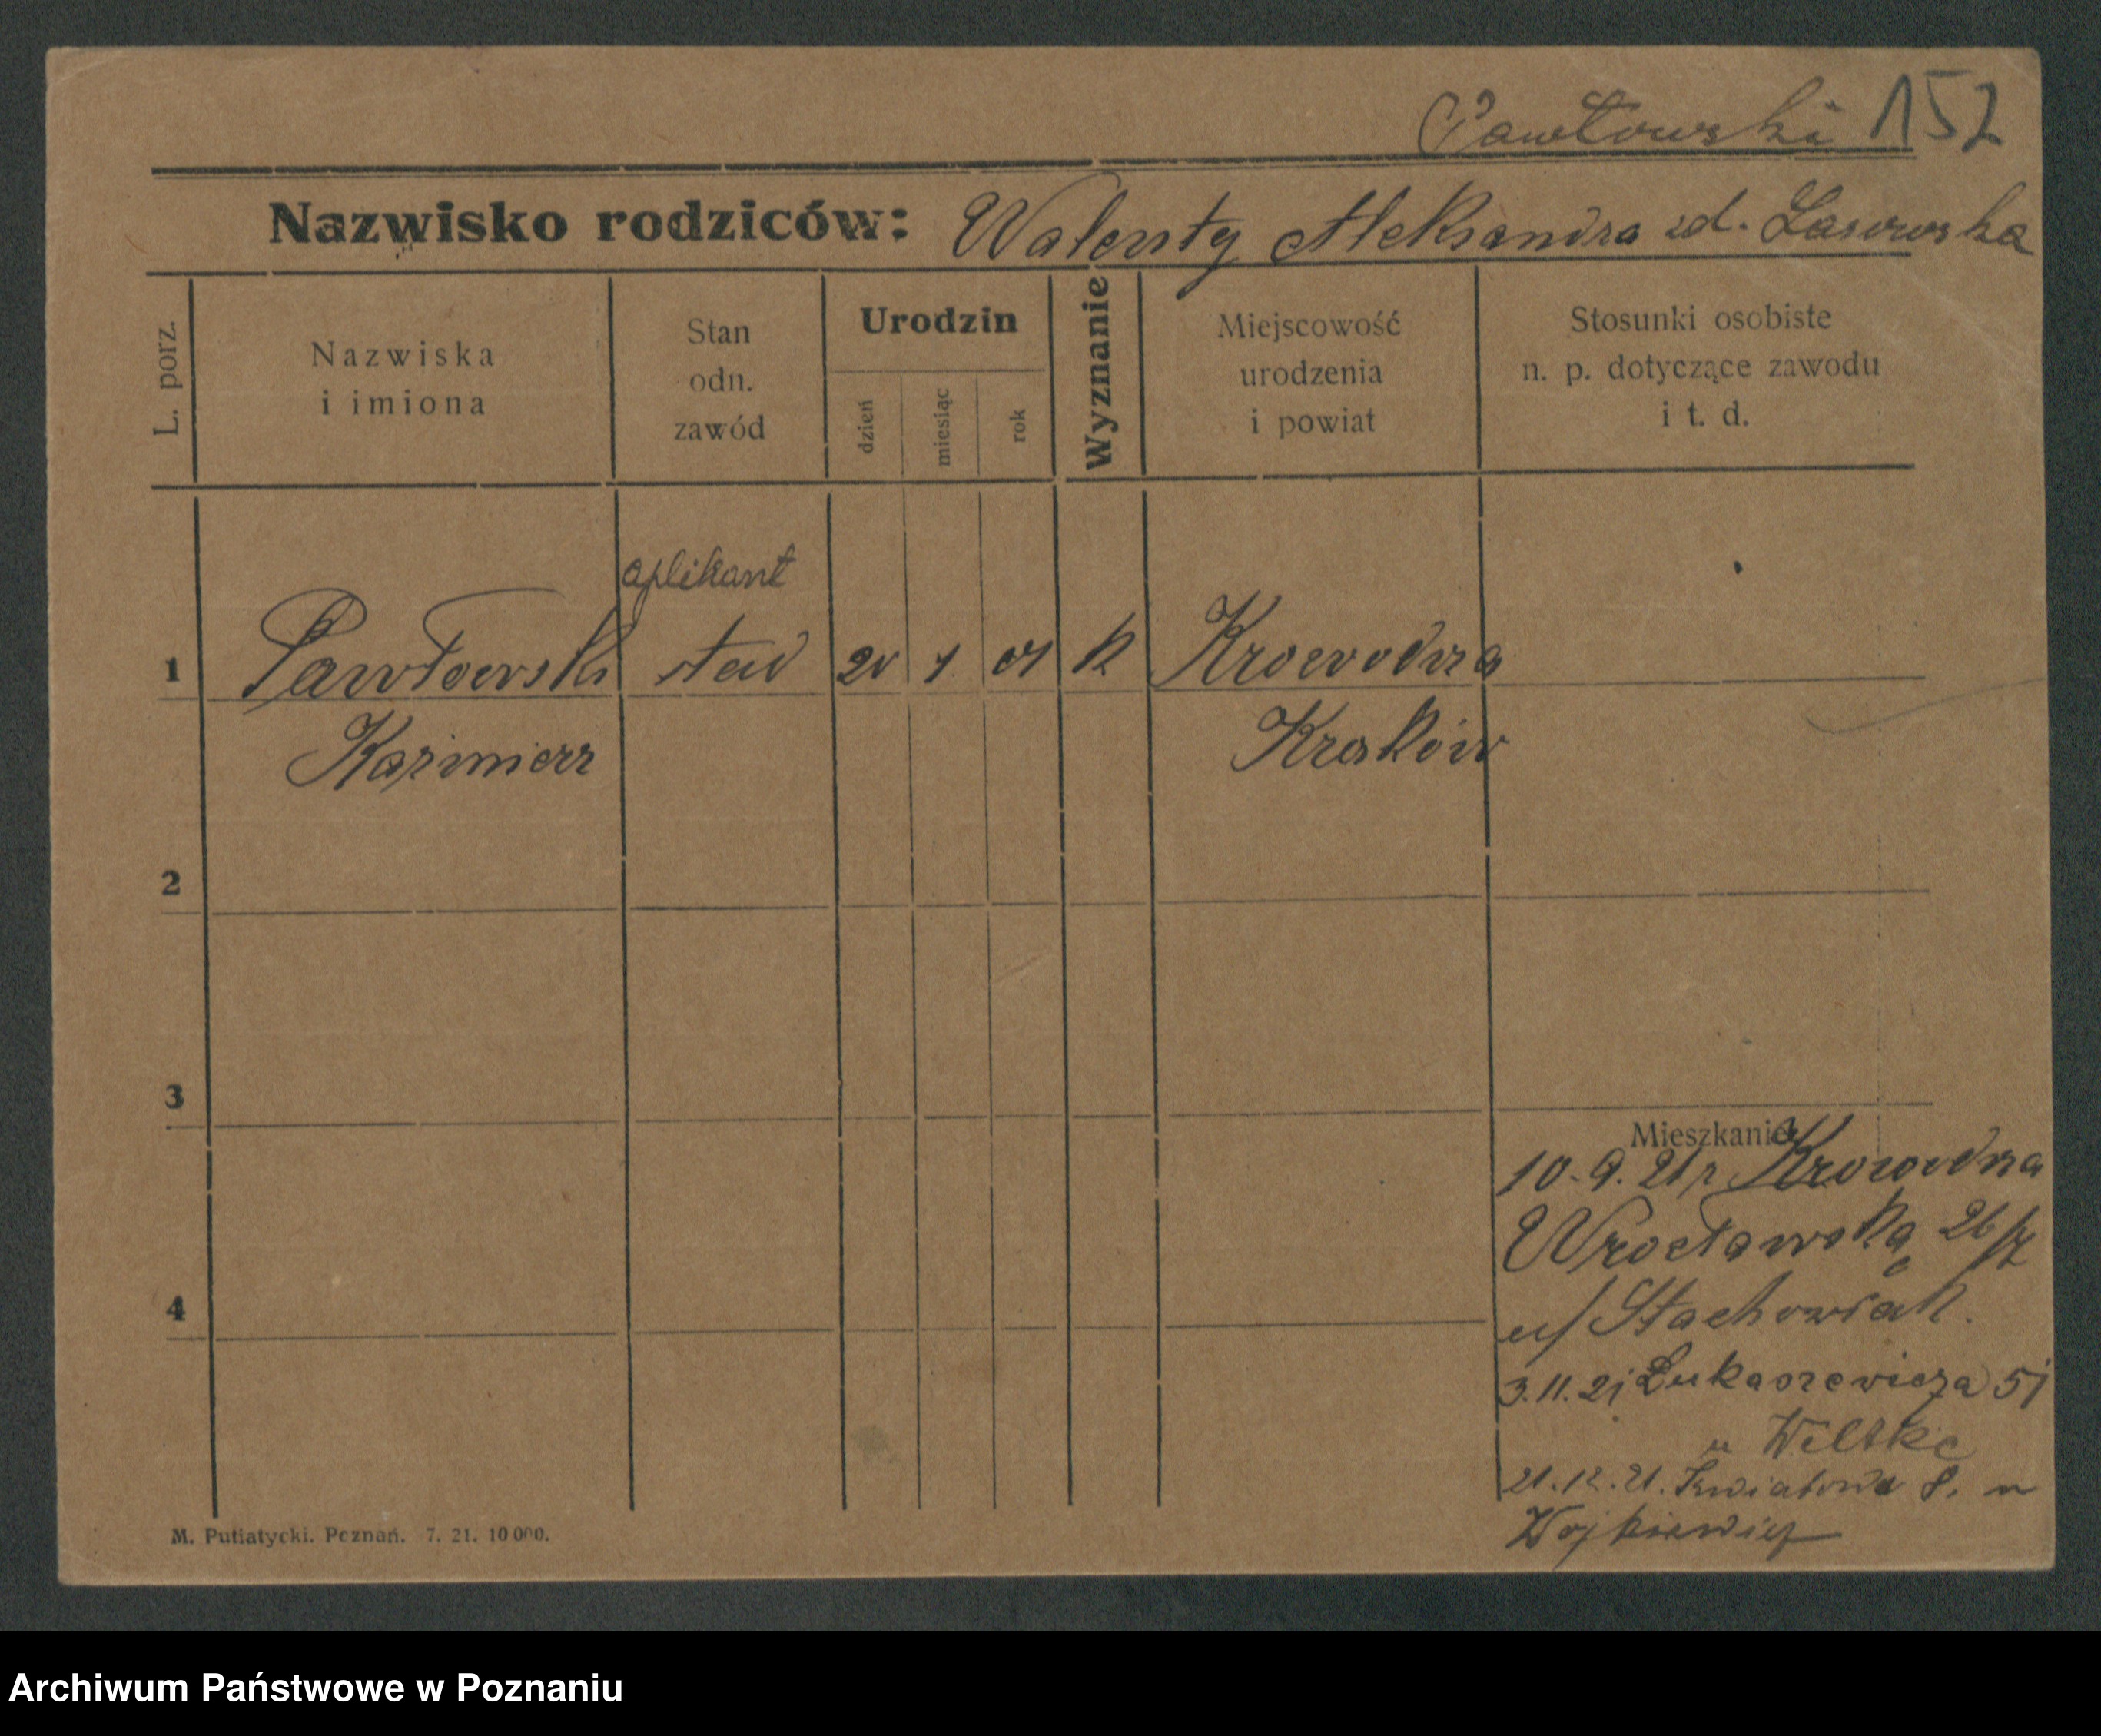 Pawłowski 152
Nazwisko rodziców: Walenty Aleksandra zd. Lasowska
L. porz.
Nazwiska
i imiona
Stan
odn.
zawód
Urodzin
dzień
miesiąc
rok
Wyznanie
Miejscowość
urodzenia
i powiat
Stosunki osobiste
n. p. dotyczące zawodu
i t. d.
aplikant
1 Pawłowski 1 01 k Krowodrza
Kazimierz Kraków
2
3
Mieszkanie
10.9.21 r Krowodrza
Wrocławska 26/
4
u/ Stachowiak.
3.11.21 Łukaszewicza 51
u
21.12.21. Kwiatowa 8. u
Wojkiewicz
M. Putiatycki. Poznań. 7. 21. 10 000.
Archiwum Państwowe w Poznaniu